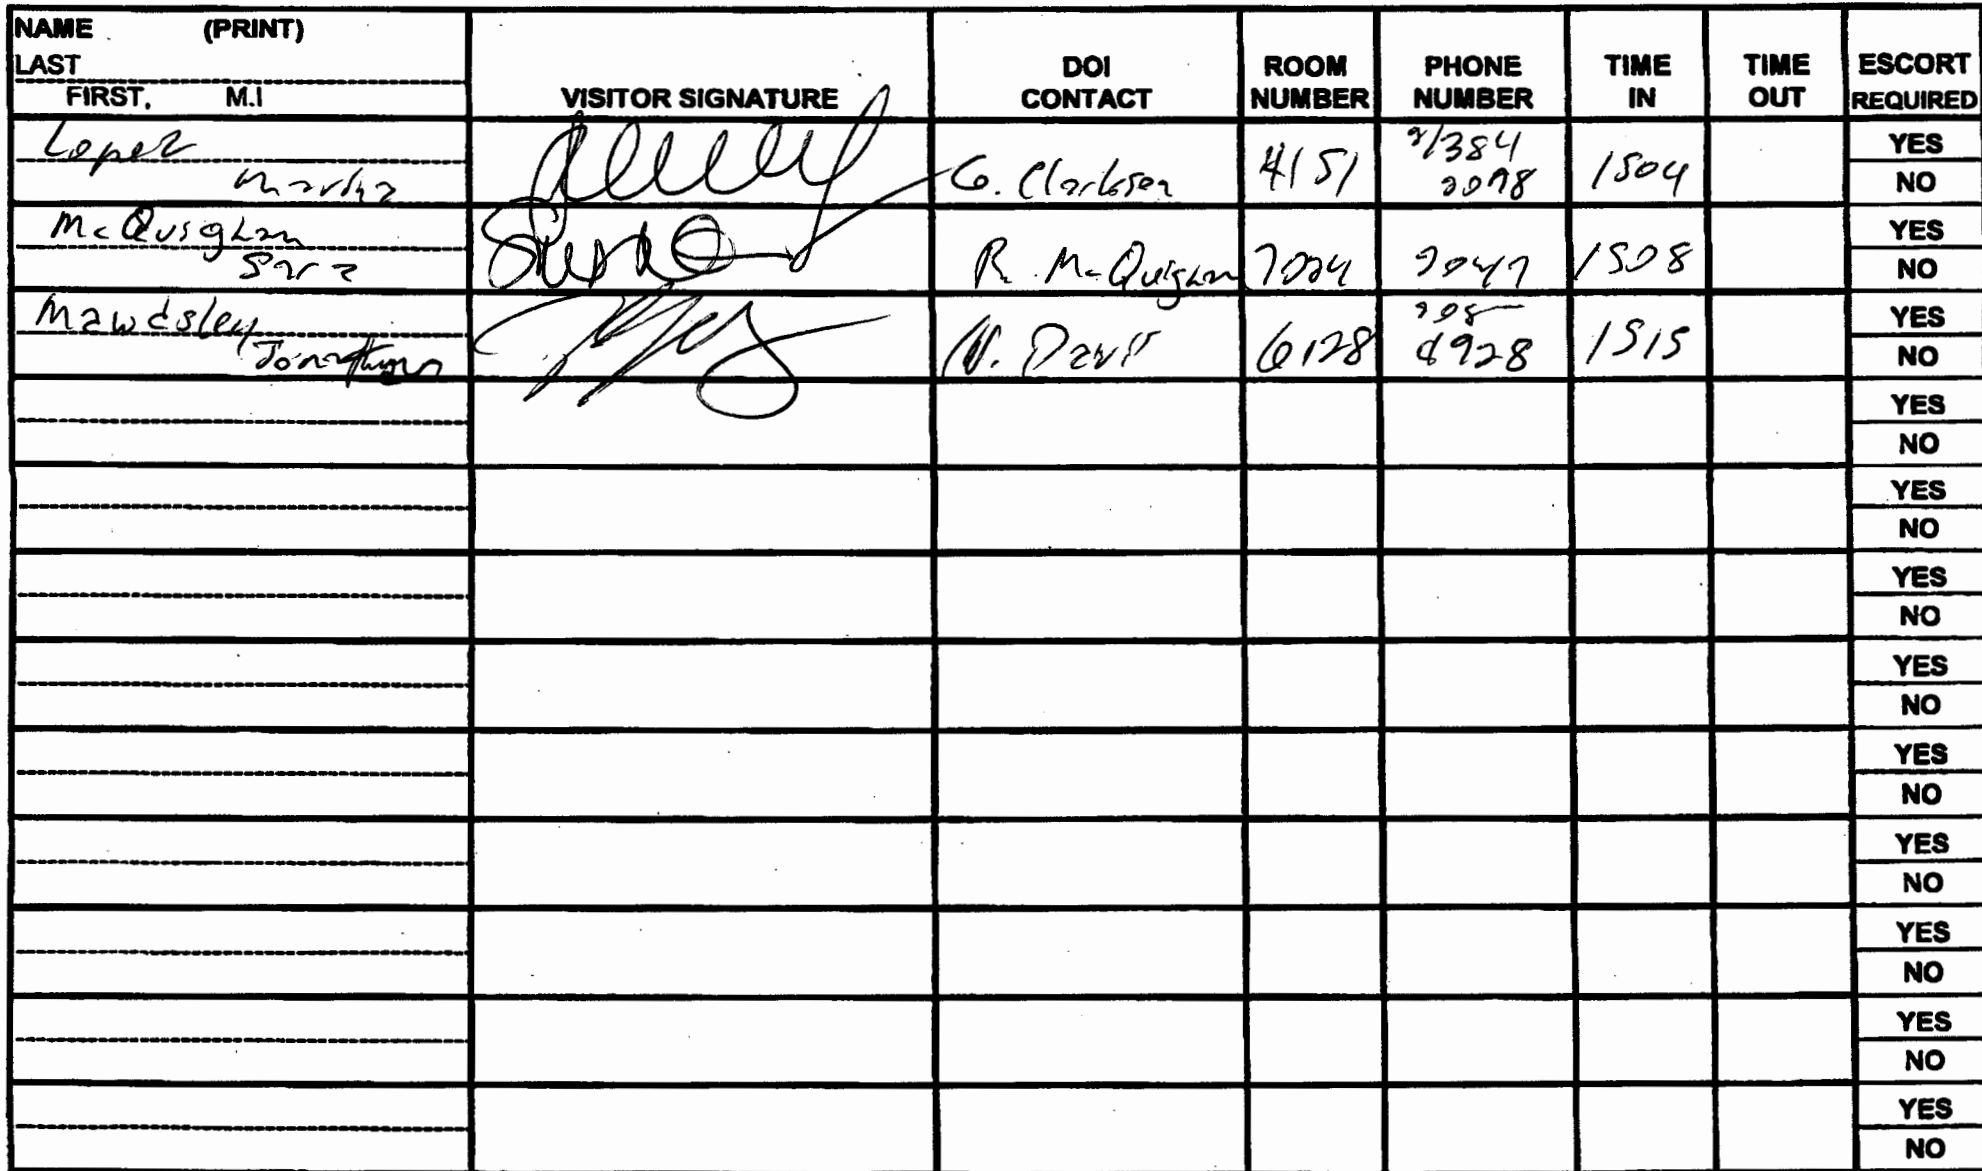 NAME (PRINT)
LAST
FIRST, M.I
VISITOR SIGNATURE
DOI
CONTACT
ROOM
NUMBER
PHONE
NUMBER
TIME
IN
TIME
OUT
ESCORT
REQUIRED
Lopez
Martha
G. Clarkson
4151
384
1504
YES
NO
McQuighan
Sara
R. McQuighan
7024
1508
YES
NO
Mawdsley
Jonathan
N. Davis
6128
1515
YES
NO
YES
NO
YES
NO
YES
NO
YES
NO
YES
NO
YES
NO
YES
NO
YES
NO
YES
NO